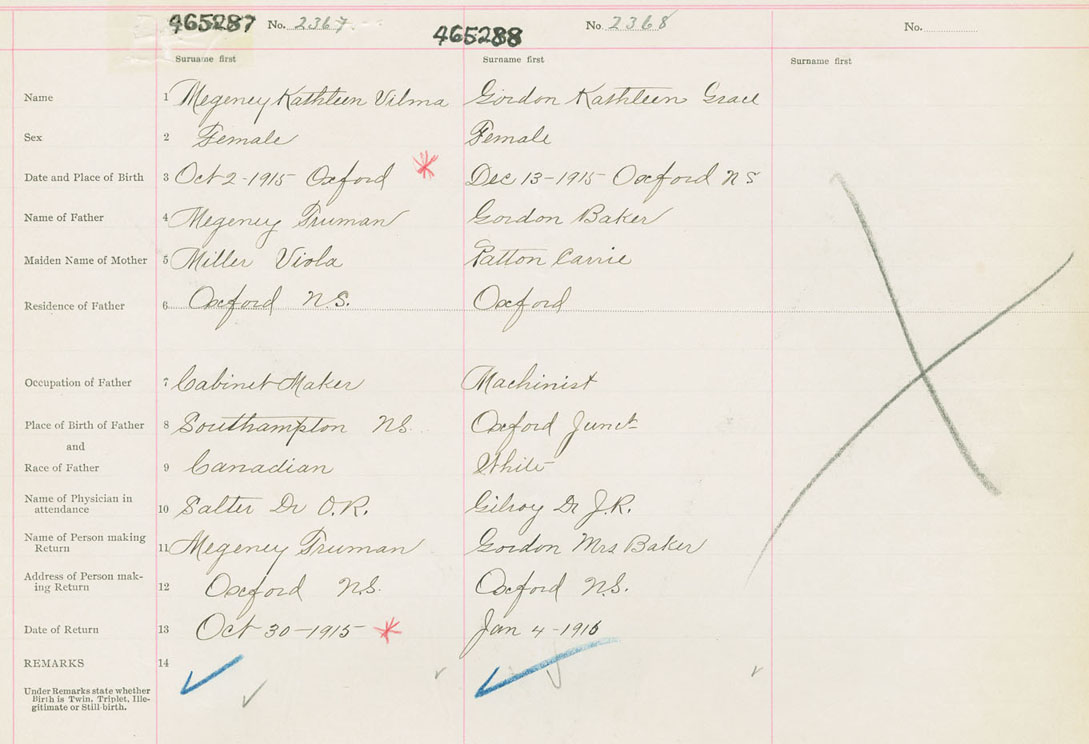 465287 No. 2367 465288 No. 2368 No.
Surname first Surname first Surname first
Name 1 Megeney Kathleen Vilma Gordon Kathleen Grace
Sex 2 Female Female
Date and Place of Birth 3 Oct 2-1915 Oxford Dec 13-1915 Oxford NS
Name of Father 4 Megeney Truman Gordon Baker
Maiden Name of Mother 5 Miller Viola Patton Carrie
Residence of Father 6 Oxford N.S. Oxford
Occupation of Father 7 Cabinet Maker Machinist
Place of Birth of Father 8 Southampton NS. Oxford Junct
and
Race of Father 9 Canadian White
Name of Physician in
attendance 10 Salter Dr O.R. Gilroy Dr J.R.
Name of Person making
Return 11 Megeney Truman Gordon Mrs Baker
Address of Person mak-
ing Return 12 Oxford NS. Oxford N.S.
Date of Return 13 Oct 30-1915 Jan 4-1916
REMARKS 14
Under Remarks state whether
Birth is Twin, Triplet, Ille-
gitimate or Still-birth.